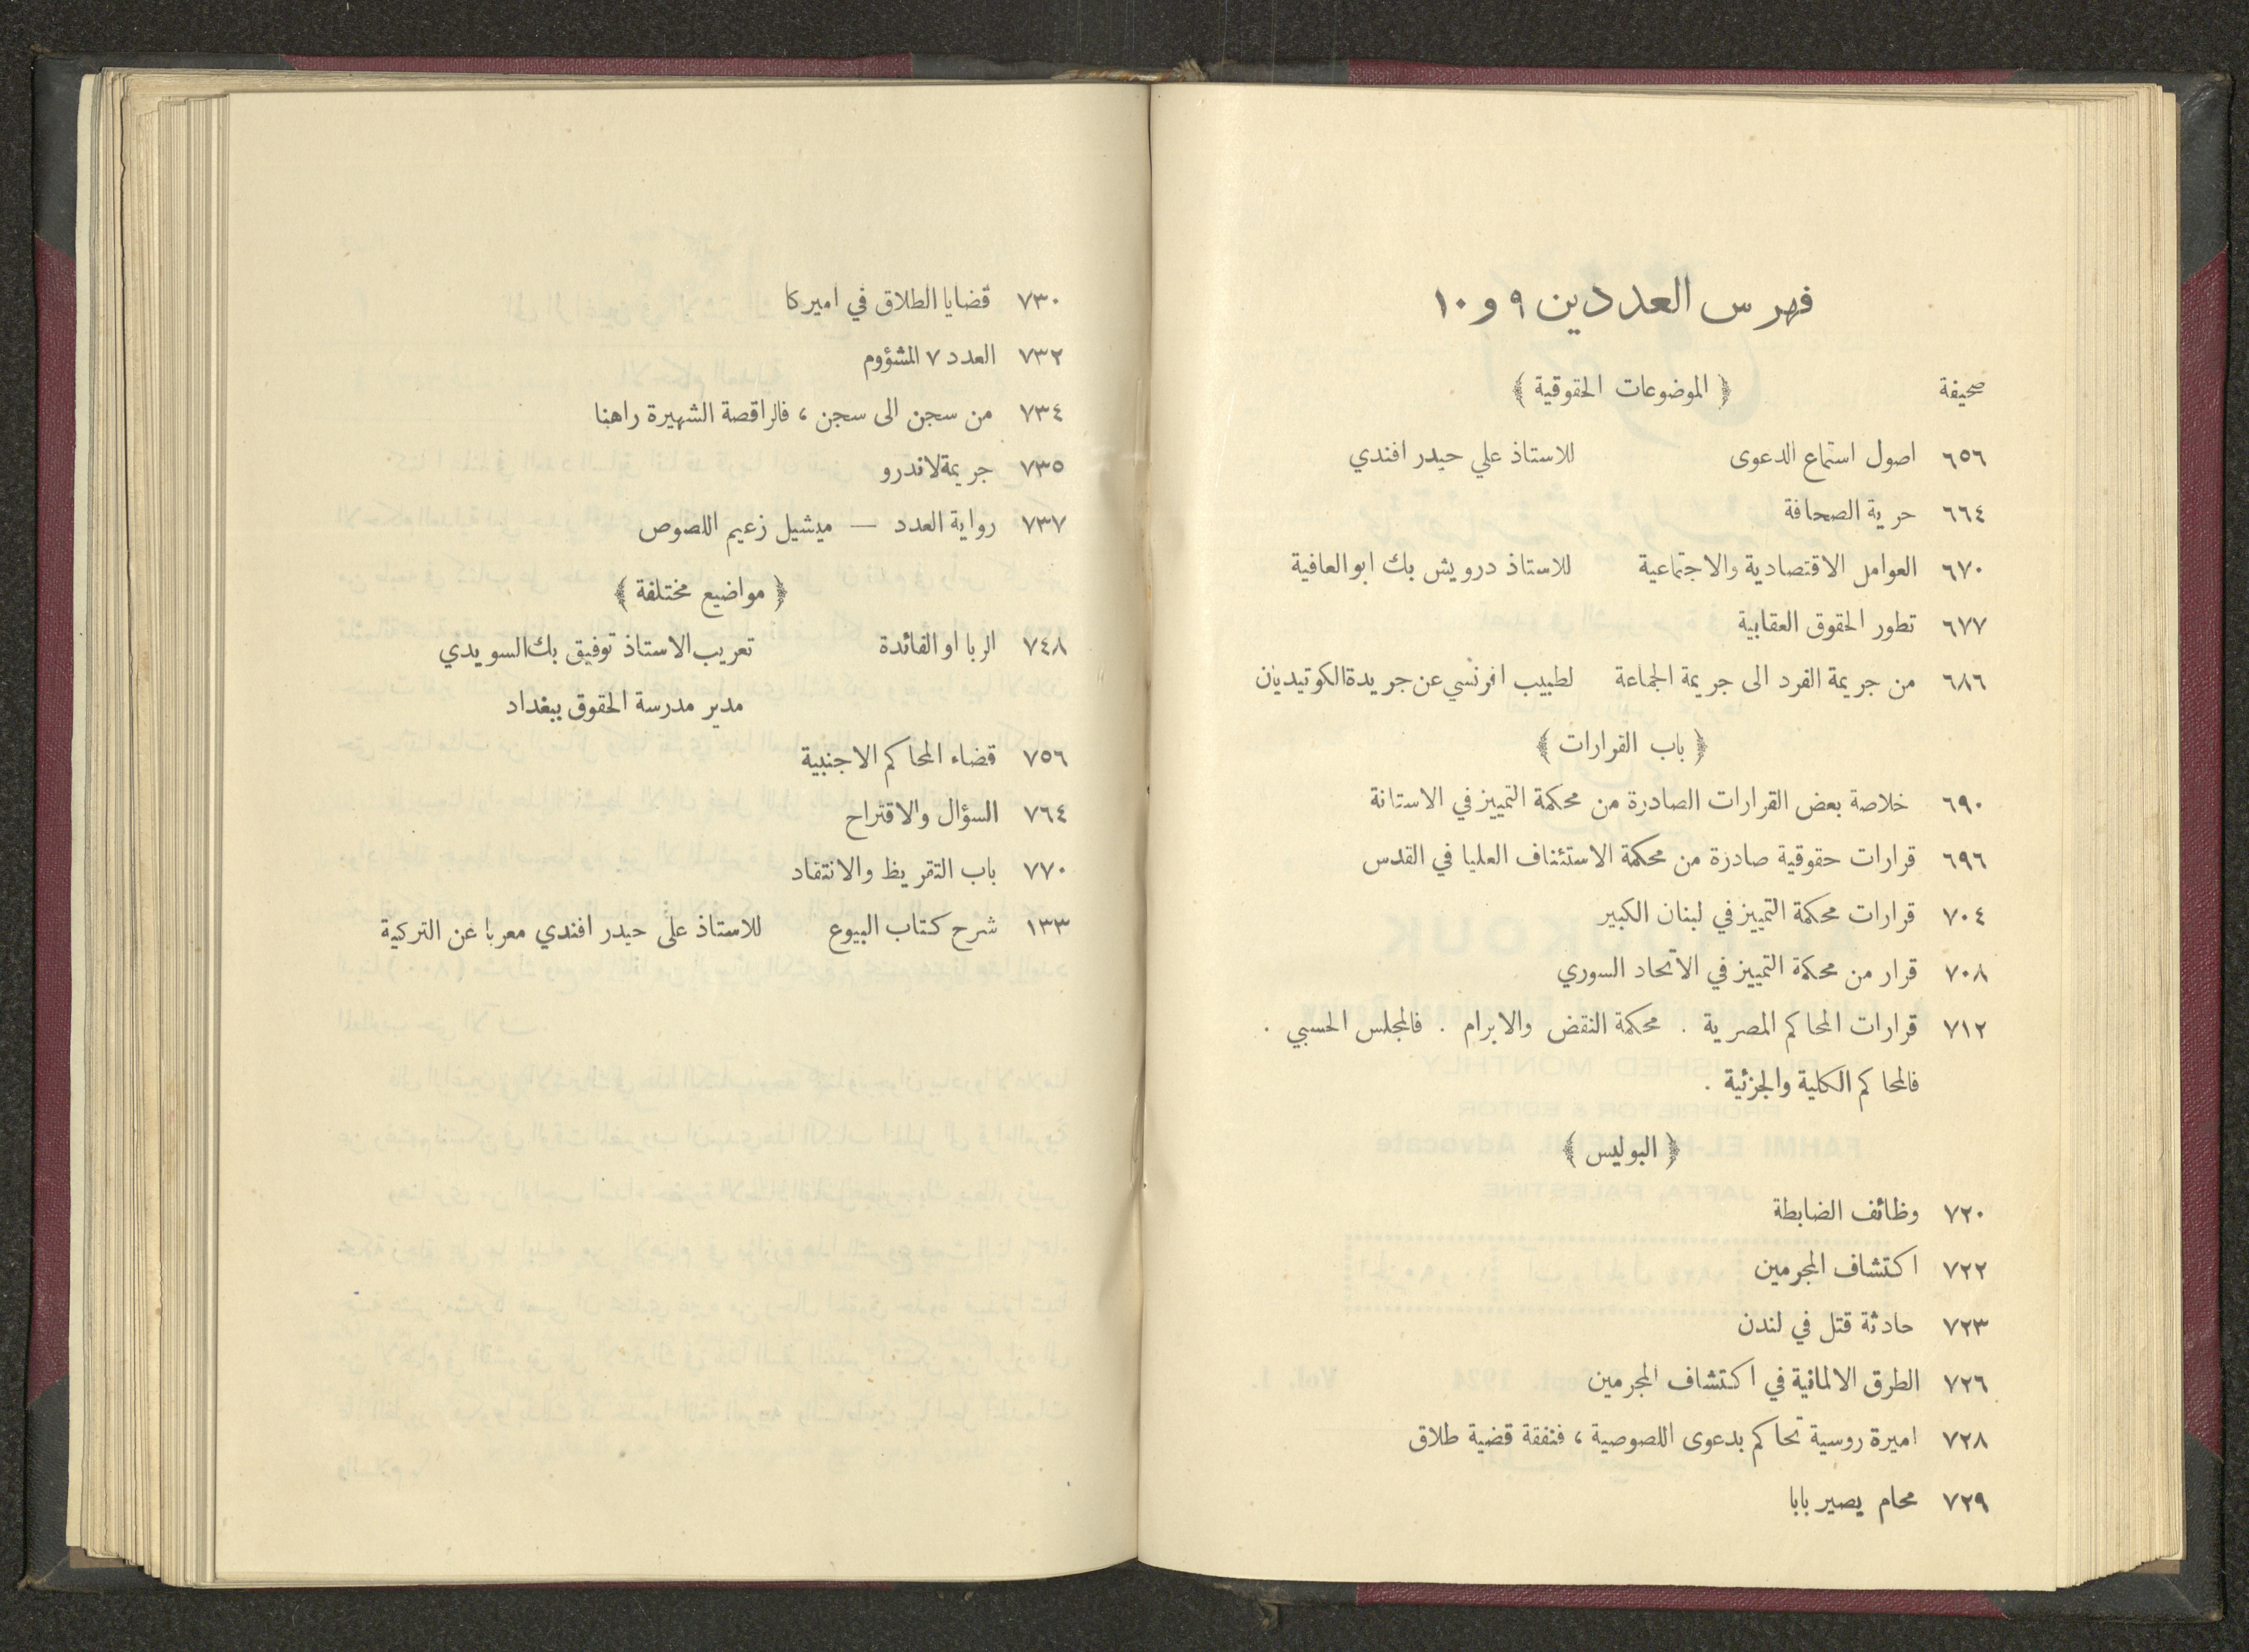 فهرس العددين ٩ و ١٠
صحيفة ﴿ الموضوعات الحقوقية ﴾
٦٥٦ اصول استماع الدعوى للاستاذ علي حيدر افندي
٦٦٤ حرية الصحافة
٦٧٠ العوامل الاقتصادية والاجتماعية للاستاذ درويش بك ابو العافية
٦٧٧ تطور الحقوق العقابية
٦٨٦ من جريمة الفرد الى جريمة الجماعة لطبيب افرنسي عن جريدة الكوتيديان
﴿ باب القرارات ﴾
٦٩٠ خلاصة بعض القرارات الصادرة من محكمة التمييز في الاستانة
٦٩٦ قرارات حقوقية صادرة من محكمة الاستئناف العليا في القدس
٧٠٤ قرارات محكمة التمييز في لبنان الكبير
٧٠٨ قرار من محكمة التمييز في الاتحاد السوري
٧١٢ قرارات المحاكم المصرية . محكمة النقض والابرام . فالمجلس الحسبي .
فالمحاكم الكلية والجزئية .
﴿ البوليس ﴾
٧٢٠ وظائف الضابطة
٧٢٢ اكتشاف المجرمين
٧٢٣ حادثة قتل في لندن
٧٢٦ الطرق الالمانية في اكتشاف المجرمين
٧٢٨ اميرة روسية تحاكم بدعوى اللصوصية ، فنفقة قضية طلاق
٧٢٩ محام يصير بابا
٧٣٠ قضايا الطلاق في اميركا
٧٣٢ العدد ٧ المشؤوم
٧٣٤ من سجن الى سجن ، فالراقصة الشهيرة راهبا
٧٣٥ جريمة لاندرو
٧٣٧ رواية العدد — ميشيل زعيم اللصوص
﴿ مواضيع مختلفة ﴾
٧٤٨ الربا او الفائدة تعريب الاستاذ توفيق بك السويدي
مدير مدرسة الحقوق ببغداد
٧٥٦ قضاء المحاكم الاجنبية
٧٦٤ السؤال والاقتراح
٧٧٠ باب التقريظ والانتقاد
١٣٣ شرح كتاب البيوع للاستاذ على حيدر افندي معربا عن التركية